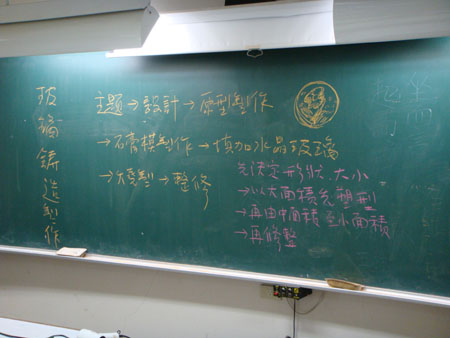 玻璃鑄造製作
主題→設計→原型製作
→石膏模製作→填加水晶玻璃
→火燒製→整修
先決定形狀、大小
→以大面積先塑型
→再由中面積至小面積
→再修整